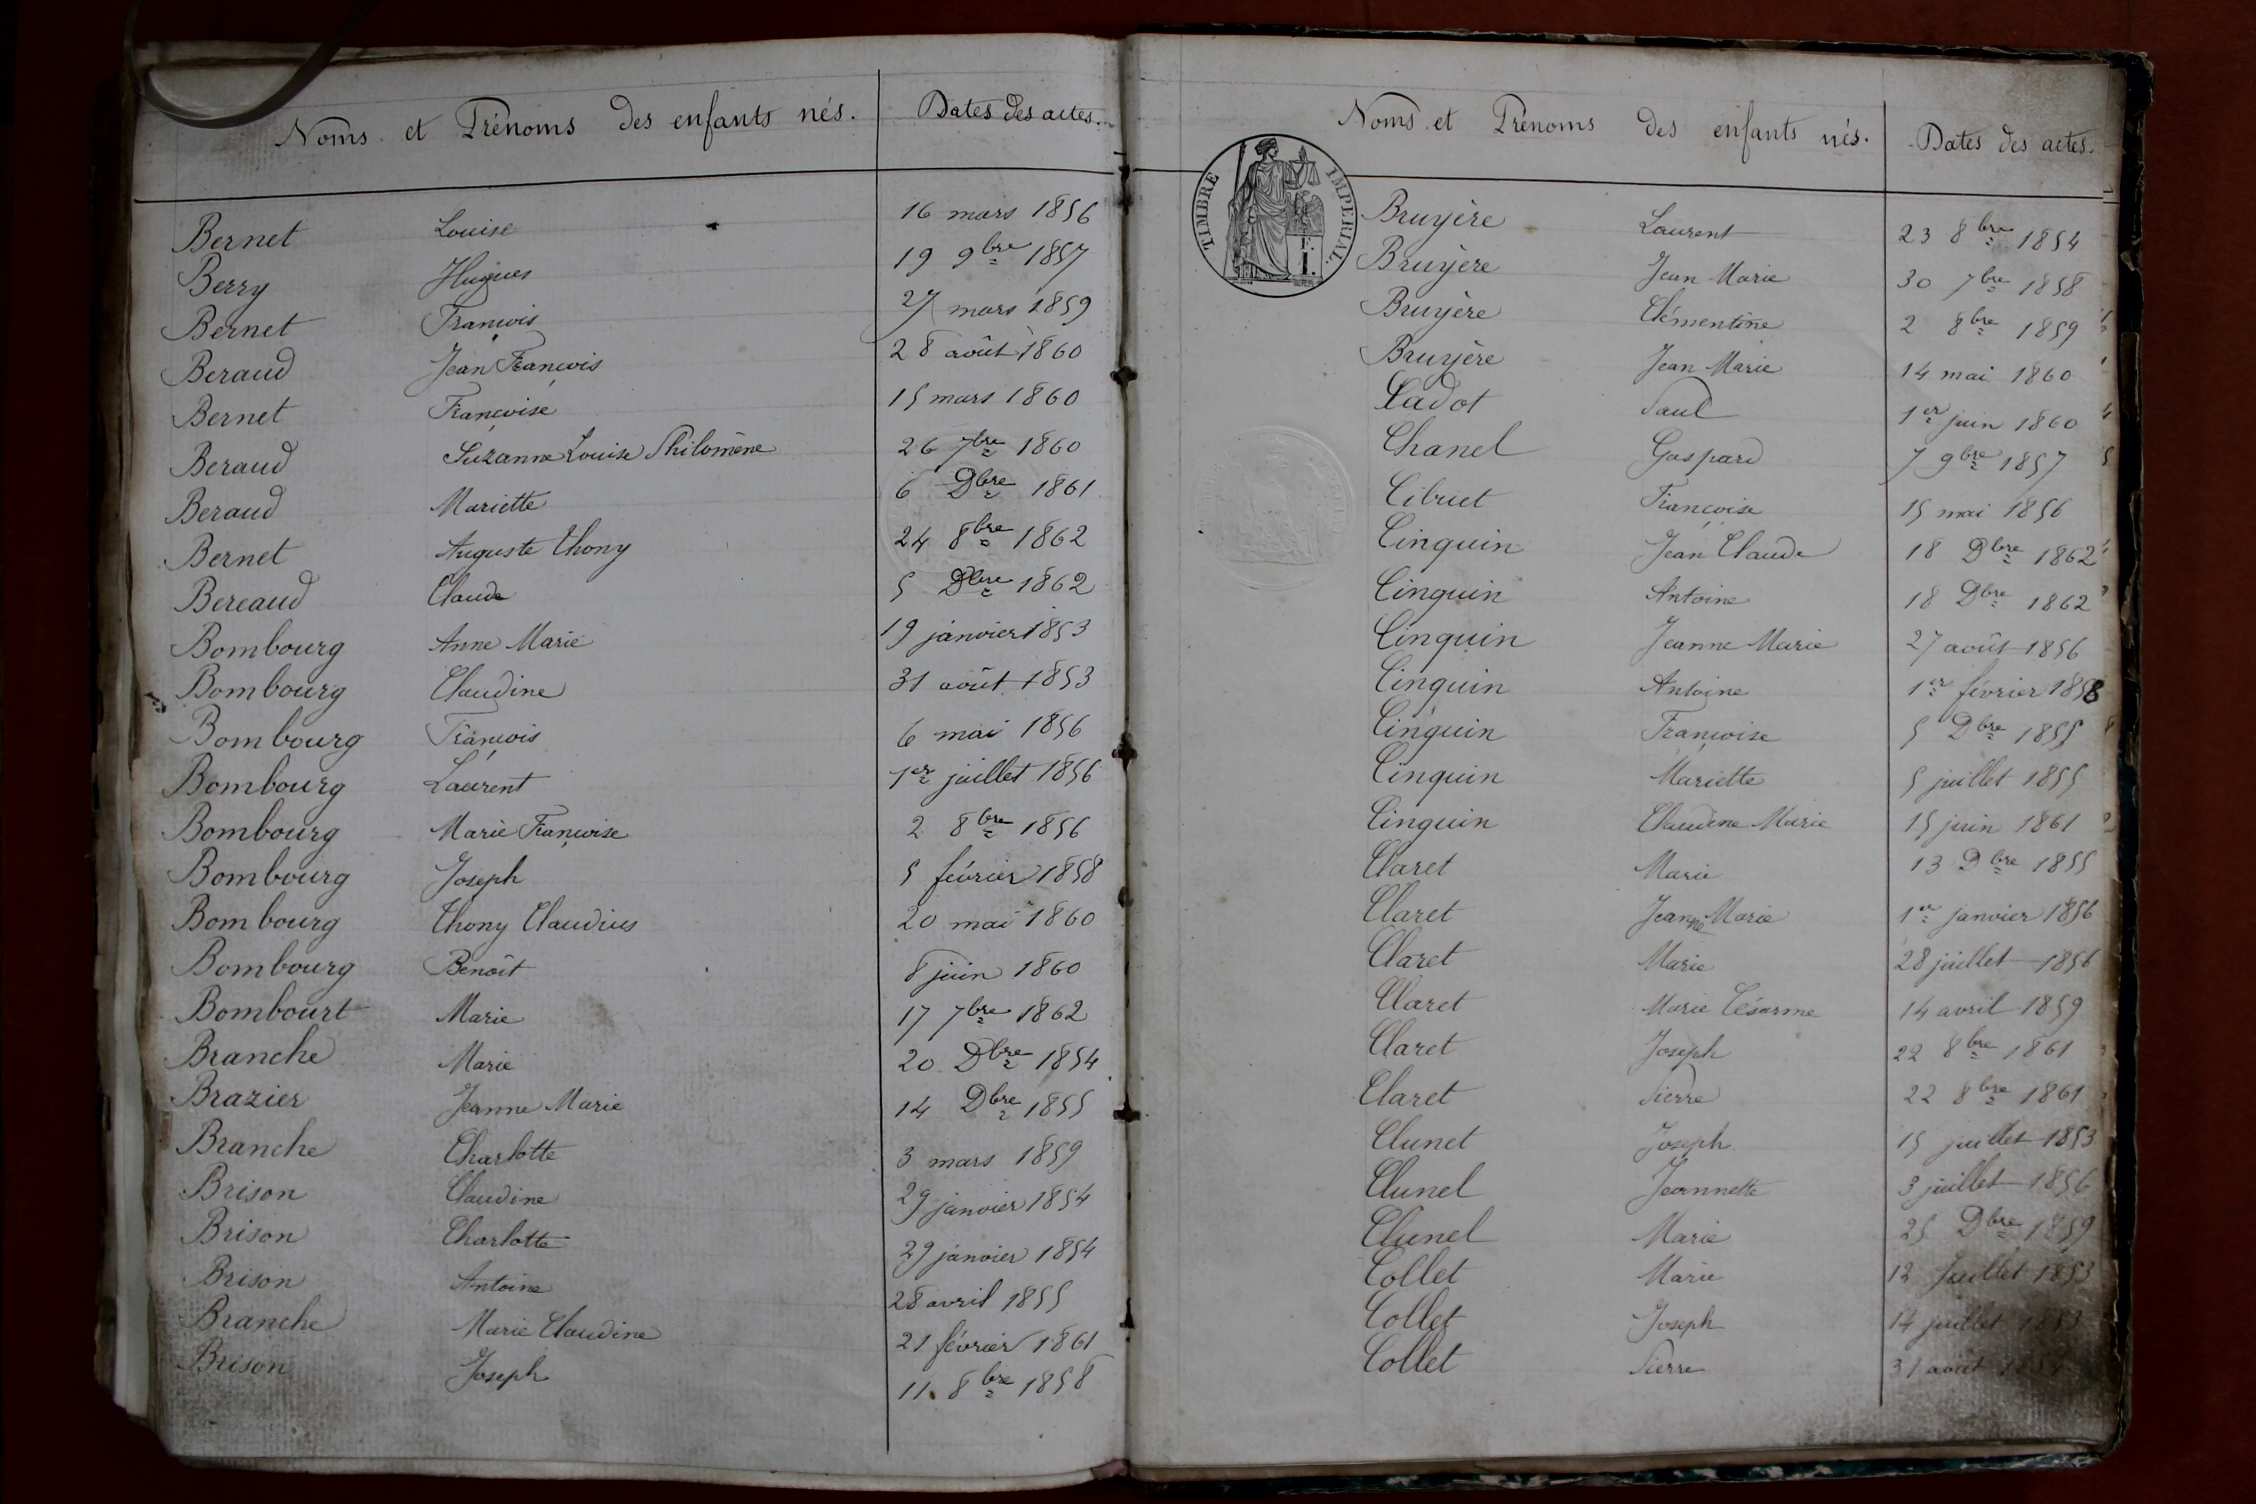 Noms et Prénoms des enfants nés. Dates des actes.
Bernet Louise 16 mars 1856
Berry Hugues 19 9bre 1857
Bernet François 27 mars 1859
Beraud Jean François 28 août 1860
Bernet Françoise 15 mars 1860
Beraud Suzanne Louise Philomène 26 7bre 1860
Beraud Mariette 6 Dbre 1861
Bernet Auguste Thony 24 8bre 1862
Bereaud Claude 5 Dbre 1862
Bombourg Anne Marie 19 janvier 1853
Bombourg Claudine 31 août 1853
Bombourg François 6 mai 1856
Bombourg Laurent 1er juillet 1856
Bombourg Marie Françoise 2 8bre 1856
Bombourg Joseph 5 février 1858
Bombourg Thony Claudius 20 mai 1860
Bombourg Benoît 8 juin 1860
Bombourt Marie 17 7bre 1862
Branche Marie 20 Dbre 1854
Brazier Jeanne Marie 14 Dbre 1855
Branche Charlotte 3 mars 1859
Brison Claudine 29 janvier 1854
Brison Charlotte 29 janvier 1854
Brison Antoine 28 avril 1855
Branche Marie Claudine 21 février 1861
Brison Joseph 11 8bre 1858
Noms et Prénoms des enfants nés. Dates des actes.
TIMBRE IMPERIAL.
E.
I.
Bruyère Laurent 23 8bre 1854
Bruyère Jean Marie 30 7bre 1858
Bruyère Clémentine 2 8bre 1859
Bruyère Jean Marie 14 mai 1860
Cadot Paul 1er juin 1860
Chanel Gaspard 7 9bre 1857
Cibuet Françoise 15 mai 1856
Cinquin Jean Claude 18 Dbre 1862
Cinquin Antoine 18 Dbre 1862
Cinquin Jeanne Marie 27 août 1856
Cinquin Antoine 1er février 1858
Cinquin Françoise 5 Dbre 1855
Cinquin Mariette 5 juillet 1855
Cinquin Claudine Marie 15 juin 1861
Claret Marie 13 Dbre 1855
Claret Jeanne Marie 1er janvier 1856
Claret Marie 28 juillet 1856
Claret Marie Césarine 14 avril 1859
Claret Joseph 22 8bre 1861
Claret Pierre 22 8bre 1861
Clunet Joseph 15 juillet 1853
Clunel Jeannette 3 juillet 1856
Clunel Marie 25 Dbre 1859
Collet Marie 12 Juillet 1853
Collet Joseph 14 juillet 1853
Collet Pierre 31 août